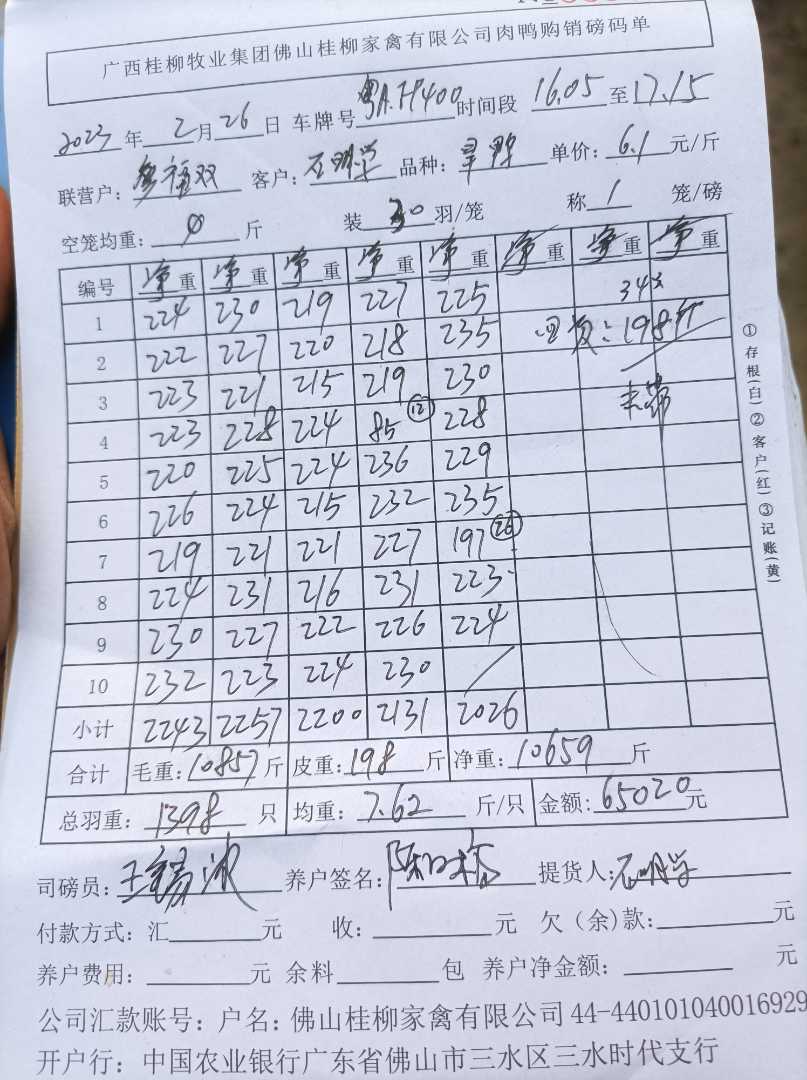 广西桂柳牧业集团佛山桂柳家禽有限公司肉鸭购销磅码单
2023年2月26日 车牌号粤A.H400时间段16.05至17.15
联营户: 客户:石明学 品种: 单价:6.1元/斤
空笼均重:0斤 装30羽/笼 称1笼/磅
编号 净重 净重 净重 净重 净重 净重 净重 净重
1 224 230 219 227 225 34
2 222 227 220 218 235 :198斤
3 223 221 215 219 230
4 223 228 224 85 ⑫ 228
5 220 225 224 236 229
6 226 224 215 232 235
7 219 221 221 227 197 ㉖
8 224 231 216 231 223
9 230 227 222 226 224
10 232 223 224 230 /
小计 2243 2257 2200 2131 2026
合计 毛重:10857斤 皮重:198斤 净重:10659斤
总羽重:1398只 均重:7.62斤/只 金额:65020元
司磅员: 养户签名: 提货人:石明学
付款方式:汇元 收:元 欠(余)款:元
养户费用:元 余料包 养户净金额:元
公司汇款账号:户名:佛山桂柳家禽有限公司44-440101040016929
开户行:中国农业银行广东省佛山市三水区三水时代支行
①存根(白)②客户(红)③记账(黄)